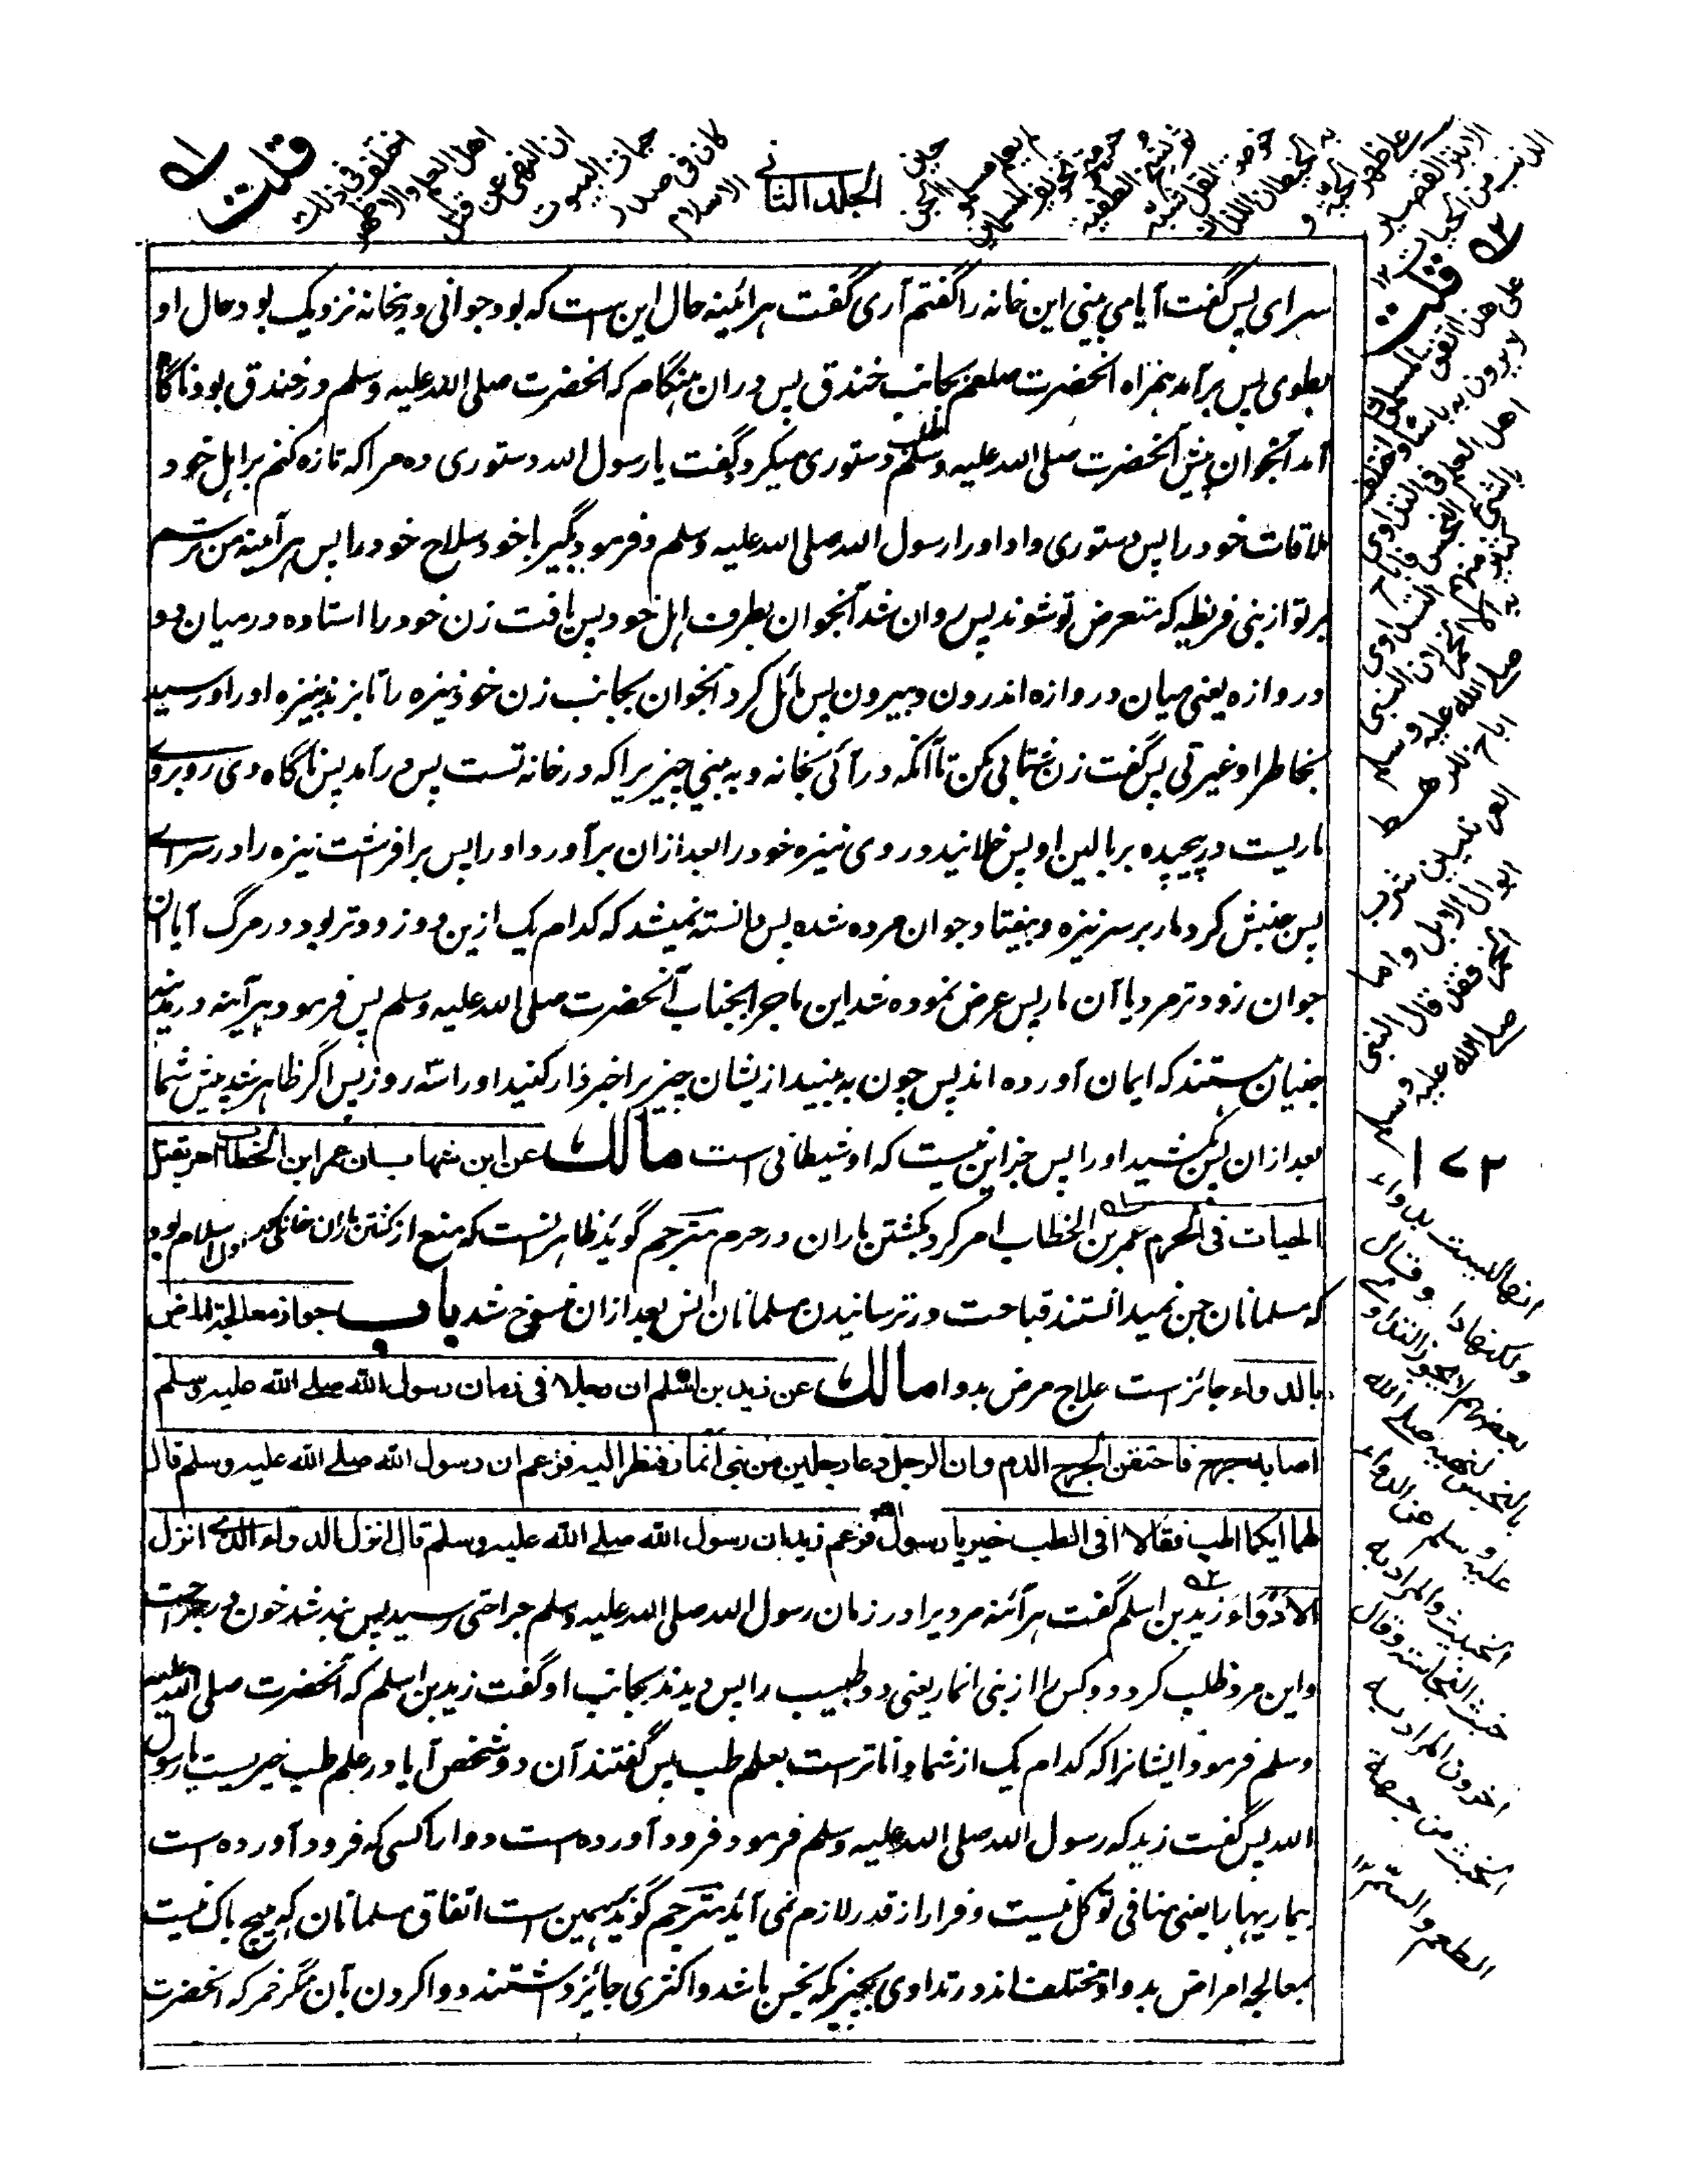 الجلد الثانی
سرای پس گفت آیا می بینی این خانه را گفتم آری گفت هر آئینه حال این است که بود جوانی و بخانه نزدیک بود حال او
بطوی پس برآمد همراه آنحضرت صلعم بجانب خندق پس دران هنگام که آنحضرت صلی الله علیه وسلم در خندق بود ناگاه
آمد آنجوان پیش آنحضرت صلی الله علیه وسلم طلب دستوری میکرد و گفت یا رسول الله دستوری ده مرا که تازه کنم بر اهل خود
ملاقات خود را پس دستوری داد او را رسول الله صلی الله علیه وسلم و فرمود بگیر با خود سلاح خود را پس هر آئینه من ترسم
بر تو از بنی قریظه که متعرض تو شوند پس روان شد آنجوان بطرف اهل خود پس یافت زن خود را استاده درمیان دو
دروازه یعنی میان دروازه اندرون و بیرون پس مائل کرد آنجوان بجانب زن خود نیزه را تا بزند بنیزه او را و رسید
بخاطر او غیرتی پس گفت زن شتابی مکن تا آنکه درآئی بخانه و به بینی چیزیرا که در خانه تست پس درآمد پس ناگاه وی روبروی
ماریست درپیچیده بر بالین او پس خلانید در وی نیزه خود را بعد ازان برآورد او را پس برافراشت نیزه را در سرای
پس جنبش کرد مار بر سر نیزه و بیفتاد جوان مرده شده پس دانسته نمیشد که کدام یک ازین دو زودتر بود در مرگ آیا آن
جوان زودتر مرد یا آن مار پس عرض نموده شد این ماجرا بجناب آنحضرت صلی الله علیه وسلم پس فرمود هر آئینه در مدینه
جنیان هستند که ایمان آورده اند پس چون به بینید ازیشان چیزیرا خبردار کنید او را سه روز پس اگر ظاهر شد پیش شما
بعد ازان پس بکشید او را پس جز این نیست که او شیطانی است مالک عن ابن شهاب ان عمر ابن الخطاب امر بقتل
الحیات فی الحرم عمر بن الخطاب امر کرد بکشتن ماران در حرم مترجم گوید ظاهر آنست که منع از کشتن ماران خانگی در اول اسلام بود
که مسلمانان جن نمیدانستند قباحت در ترسانیدن مسلمانان انس بعد ازان منسوخ شد باب جواز معالجة المرض
بالدواء جائز است علاج مرض بدوا مالک عن زید بن اسلم ان رجلا فی زمان رسول الله صلے الله علیه وسلم
اصابه جرح فاحتقن الجرح الدم وان الرجل دعا رجلین من بنی انمار فنظر الیه فزعم ان رسول الله صلے الله علیه وسلم قال
لهما ایکما اطب فقالا افی الطب خیر یا رسول الله فزعم زید ان رسول الله صلے الله علیه وسلم قال انزل الدواء الذی انزل
الادواء زید بن اسلم گفت هر آئنه مردیرا در زمان رسول الله صلی الله علیه وسلم جراحتی رسید پس بند شد خون در جراحت
و این مرد طلب کرد دو کس را از بنی انمار یعنی دو طبیب را پس دیدند بجانب او گفت زید بن اسلم که آنحضرت صلی الله علیه
وسلم فرمود ایشانرا که کدام یک از شما داناتر است بعلم طب پس گفتند آن دو شخص آیا در علم طب خیریست یا رسول
الله پس گفت زید که رسول الله صلی الله علیه وسلم فرمود فرود آورده است دوا را کسی که فرود آورده است
بیماریها را یعنی منافی توکل نیست و فرار از قدر لازم نمی آید مترجم گوید همین است اتفاق مسلمانان که هیچ باک نیست
بمعالجه امراض بدوا و مختلف اند در تداوی بچیزیکه نجس باشد و اکثری جائز داشتند دوا کردن بآن مگر خمر که آنحضرت
قلت
اختلفوا فی ذلک
اهل العلم والاظهر
ان النهی عن قتل
جنان البیوت
کان فی صدر
الاسلام
قلت
علی هذا اتفق المسلمون
لا یرون به باسا واختلف
اهل العلم فی التداوی
بالشئ النجس فاباح
کثیر منهم التداوی
به الا الخمر لان النبی
صلے الله علیه وسلم
اباح للرهط
العرنیین شرب
ابوال الابل واما
الخمر فقد قال النبی
صلے الله علیه وسلم
۱۷۲
انها لیست بدواء
ولکنها داء وقال
بعضهم لا یجوز التداوی
بالنجس لنهیه صلے الله
علیه وسلم عن الدواء
الخبیث والمراد به
خبث النجاسة وقال
اخرون المراد به
الخبث من جهة
الطعم و